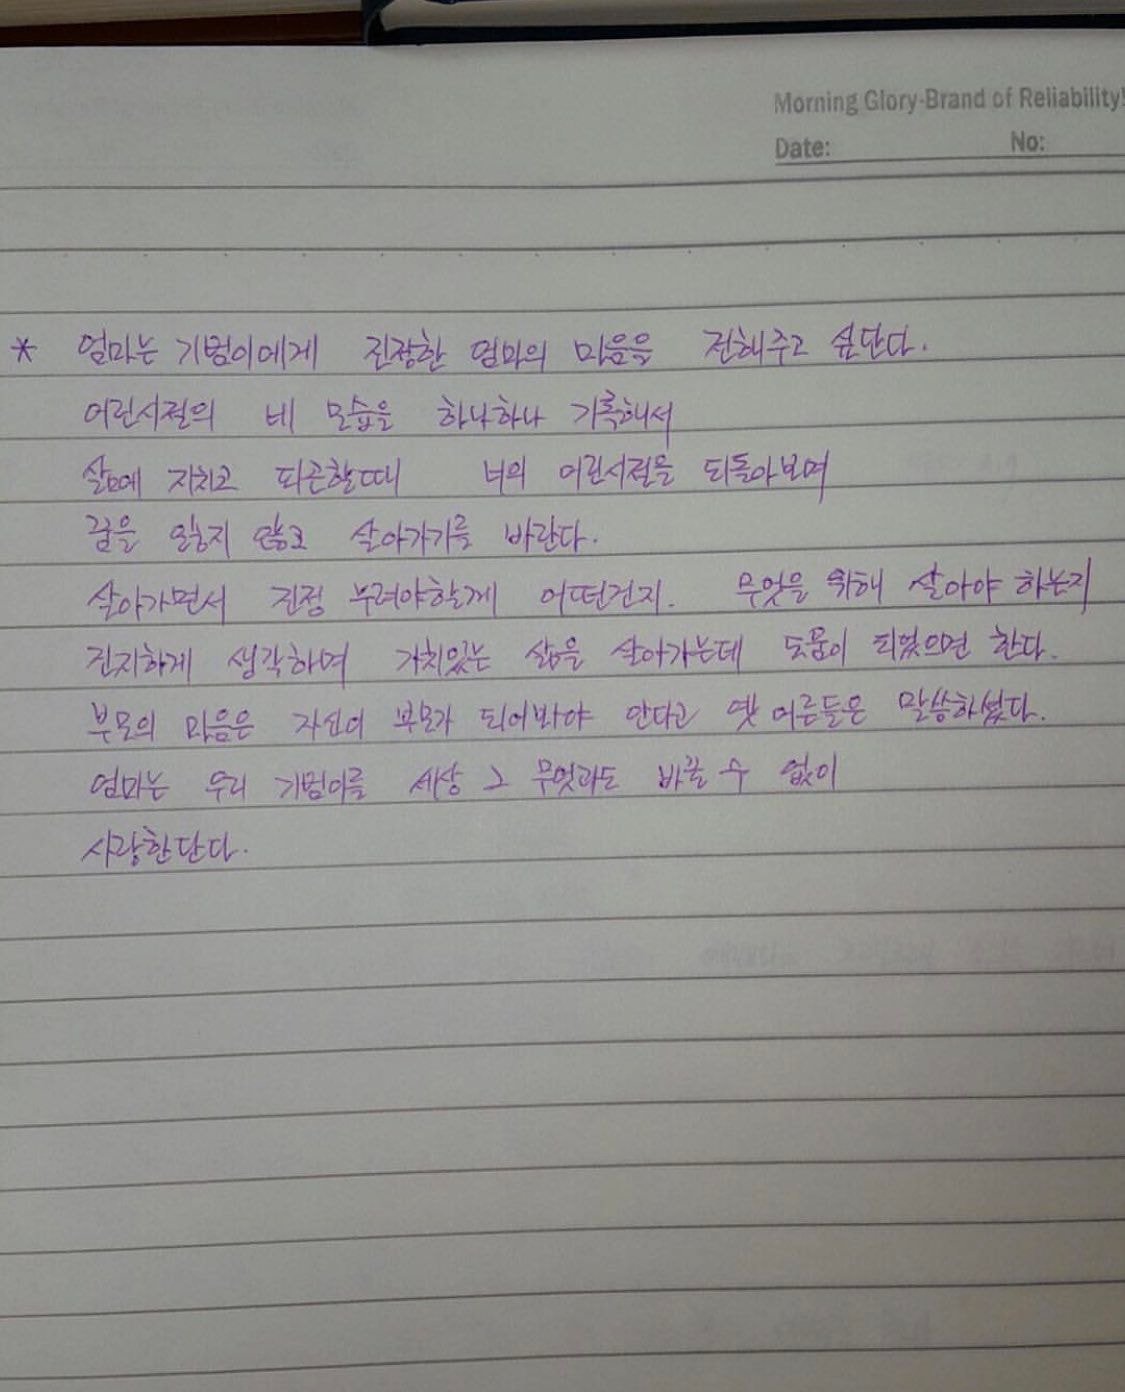 Morning Glory-Brand of Reliability!
Date: No:
* 엄마는 기범이에게 진정한 엄마의 마음을 전해주고 싶단다.
어린시절의 네 모습을 하나하나 기록해서
삶에 지치고 피곤할때 너의 어린시절을 되돌아보며
꿈을 잃지 않고 살아가기를 바란다.
살아가면서 진정 누려야할게 어떤건지. 무엇을 위해 살아야 하는지
진지하게 생각하며 가치있는 삶을 살아가는데 도움이 되었으면 한다.
부모의 마음은 자신이 부모가 되어봐야 안다고 옛 어른들은 말씀하셨다.
엄마는 우리 기범이를 세상 그 무엇과도 바꿀 수 없이
사랑한단다.